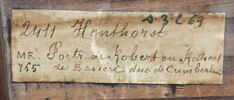 S.R. 69
2411 Honthorst
MR. Portr. de Robert ou Rupert
755 de Bavière duc de Cumberland